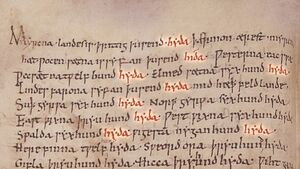 Myrcna landes is þrittig þusend hyda þær mon ærest myrcna
hæt pocen sætna is syfan þusend hida. Westerna eac spa.
Pecsætna tpelf hund hyda. Elmed sætna syx hund hyda.
Lindes farona syfan þusend hyda mid hæþ feld lande.
Suþ gyrpa syx hund hyda. Norþ gyrpa syx hund hyda.
East pixna þryu hund hyda. West pixna syx hund hyda.
Spalda syx hund hyda. pigesta nygan hund hyda.
Here finna tpelf hund hyda. Speord ora þryu hund hyda.
Gifla þryu hund hyda. Hicca þryu hund hyda. Wiht ga